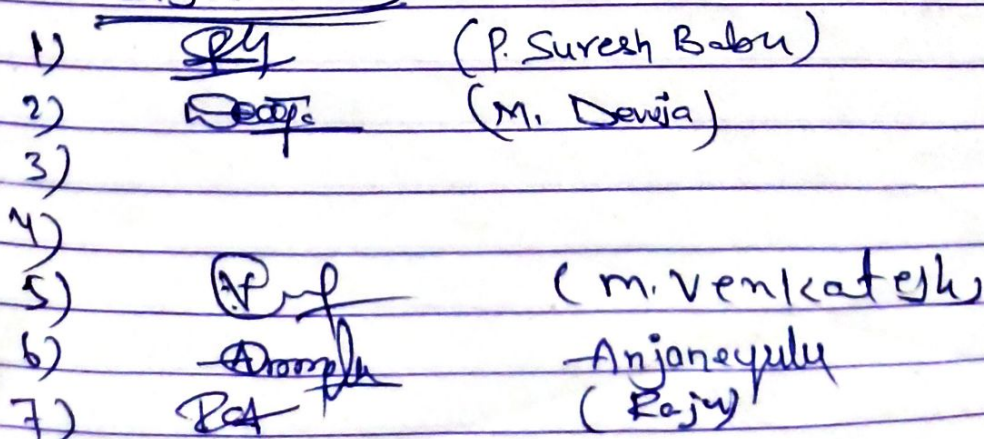 1) (P. Suresh Babu)
2) (M. Devija)
3)
4)
5) (M. Venkatesh)
6) Anjaneyulu
7) (Raju)